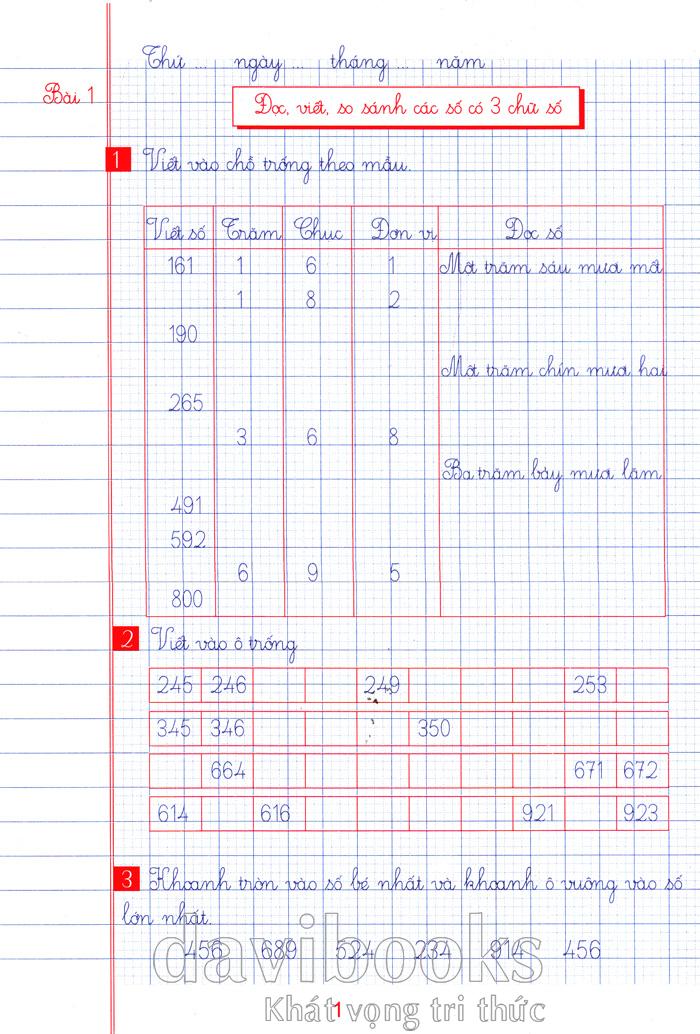 Thứ ... ngày ... tháng ... năm
Bài 1
Đọc, viết, so sánh các số có 3 chữ số
1 Viết vào chỗ trống theo mẫu.
Viết số Trăm Chục Đơn vị Đọc số
161 1 6 1 Một trăm sáu mươi mốt
1 8 2
190
Một trăm chín mươi hai
265
3 6 8
Ba trăm bảy mươi lăm
491
592
6 9 5
800
2 Viết vào ô trống
245 246 249 253
345 346 350
664 671 672
614 616 921 923
3 Khoanh tròn vào số bé nhất và khoanh ô vuông vào số
lớn nhất.
456 689 524 234 914 456
davibooks
Khát vọng tri thức
1